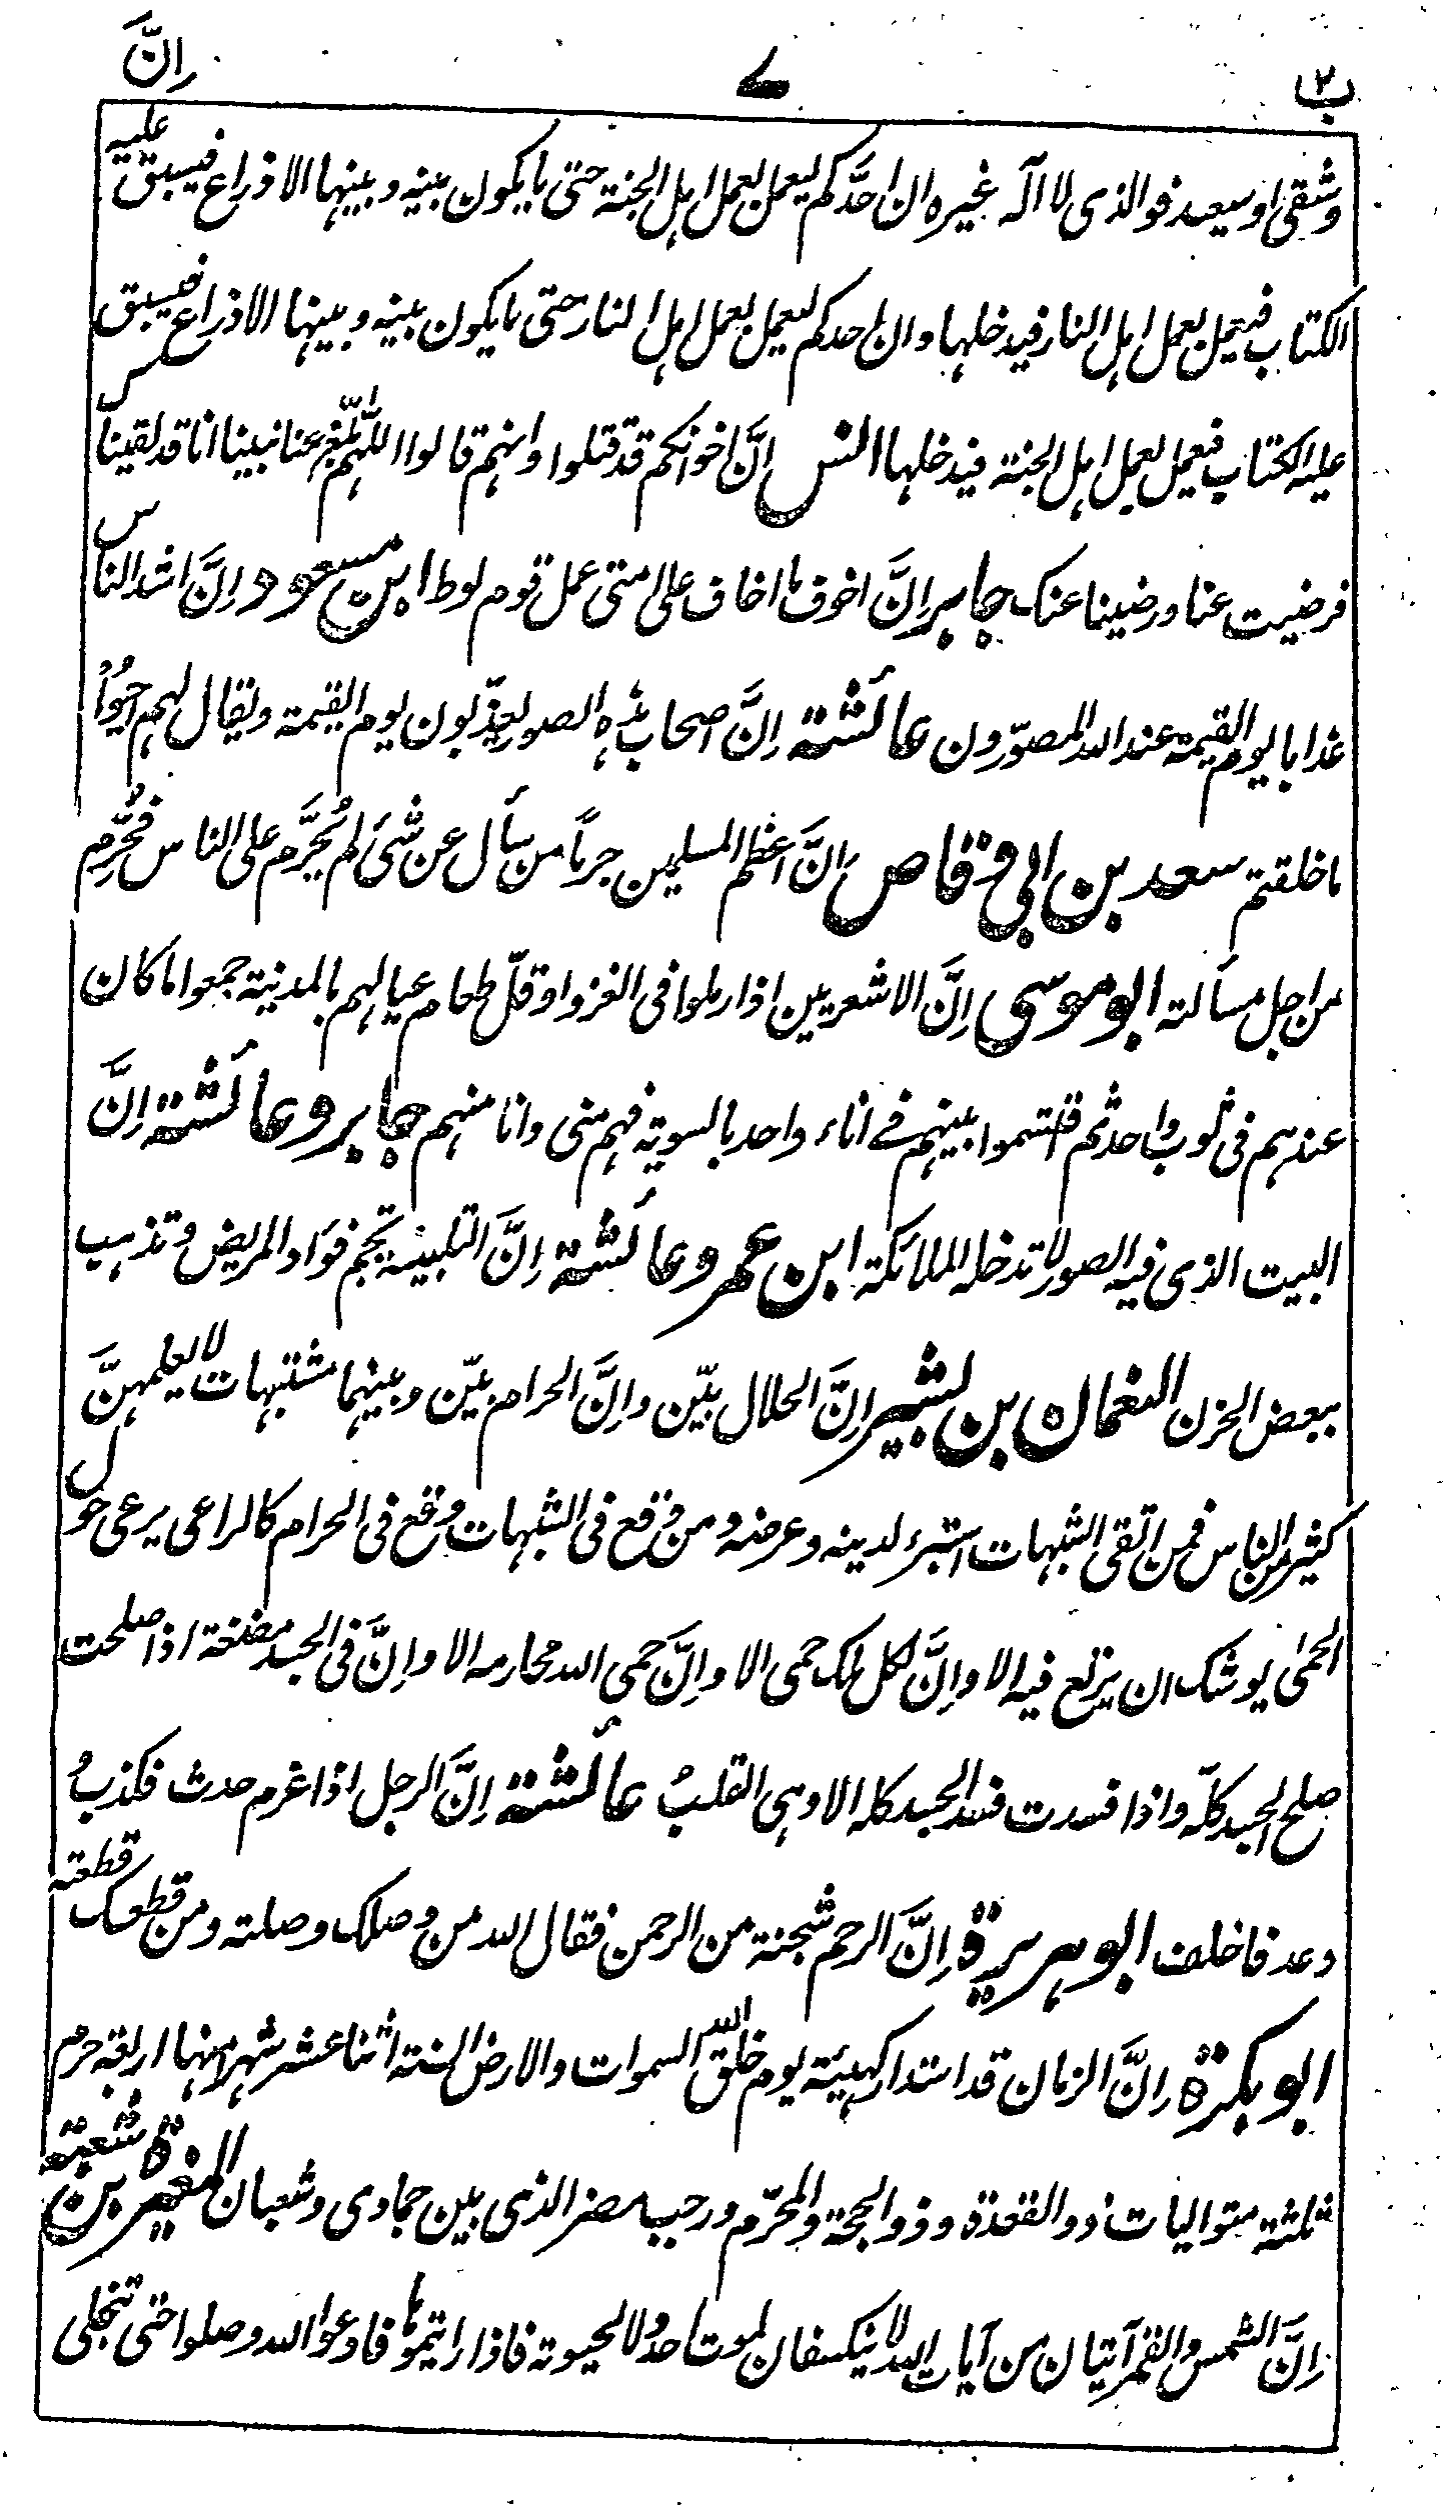 ب۲ ۷ اِنَّ
وشقی او سعید فو الذی لا اله غیره ان احدَّکم لیعمل بعمل اهل الجنة حتی ما یکون بینه و بینها الا ذراع فیسبق علیه
الکتاب فیعمل بعمل اهل النار فیدخلها و ان احدکم لیعمل بعمل اهل النار حتی ما یکون بینه و بینها الا ذراع فیسبق
علیه الکتاب فیعمل بعمل اهل الجنة فیدخلها انس اِنَّ اخوانکم قد قتلوا و انهم قالوا اللّٰهم بلّغ عنا نبینا انا قد لقیناک
فرضیت عنا و رضینا عنک جابر اِنَّ اخوف ما اخاف علی امتی عمل قوم لوط ابن مسعود اِنَّ اشد الناس
عذابا یوم القیمة عند الله المصوّرون عائشة اِنَّ اصحاب هذه الصور یعذّبون یوم القیمة و یقال لهم احیُوْا
ما خلقتم سعد بن ابی وقاص اِنَّ اعظم المسلمین جرماً من سأل عن شیٔ لم یُحَرَّم علی الناس فحُرِّم
من اجل مسألته ابو موسی اِنَّ الاشعریین اذا ارملوا فی الغزو او قلّ طعام عیالهم بالمدینة جمعوا ما کان
عندهم فی ثوب واحد ثم اقتسموا بینهم فی اناء واحد بالسویة فهم منی و انا منهم جابر و عائشة اِنَّ
البیت الذی فیه الصور لا تدخله الملائکة ابن عمر و عائشة اِنَّ التلبینة تجم فؤاد المریض و تذهب
ببعض الحزن النعمان بن بشیر اِنَّ الحلال بیّن و اِنَّ الحرام بیّن و بینهما مشتبهات لا یعلمهنَّ
کثیر من الناس فمن اتقی الشبهات استبرء لدینه و عرضه و من وقع فی الشبهات وقع فی الحرام کالراعی یرعی حول
الحمی یوشک ان یرتع فیه الا و اِنَّ لکل ملک حمی الا و اِنَّ حمی الله محارمه الا و اِنَّ فی الجسد مضغة اذا صلحت
صلح الجسد کلّه و اذا فسدت فسد الجسد کله الا و هی القلبُ عائشة اِنَّ الرجل اذا غرم حدث فکذب و
وعد فاخلف ابو هریرة اِنَّ الرحم شجنة من الرحمن فقال الله من وصلک وصلته و من قطعک قطعته
ابو بکرة اِنَّ الزمان قد استدار کهیئته یوم خلق اللّٰه السموات و الارض السنة اثنا عشر شهرا منها اربعة حرم
ثلثة متوالیات ذو القعدة و ذو الحجة و المحرّم و رجب مضر الذی بین جمادی و شعبان المغیرة بن شعبة
اِنَّ الشمس و القمر آیتان من آیات الله لا ینکسفان لموت احد و لا لحیوته فاذا رایتموها فادعوا الله و صلوا حتی تنجلی